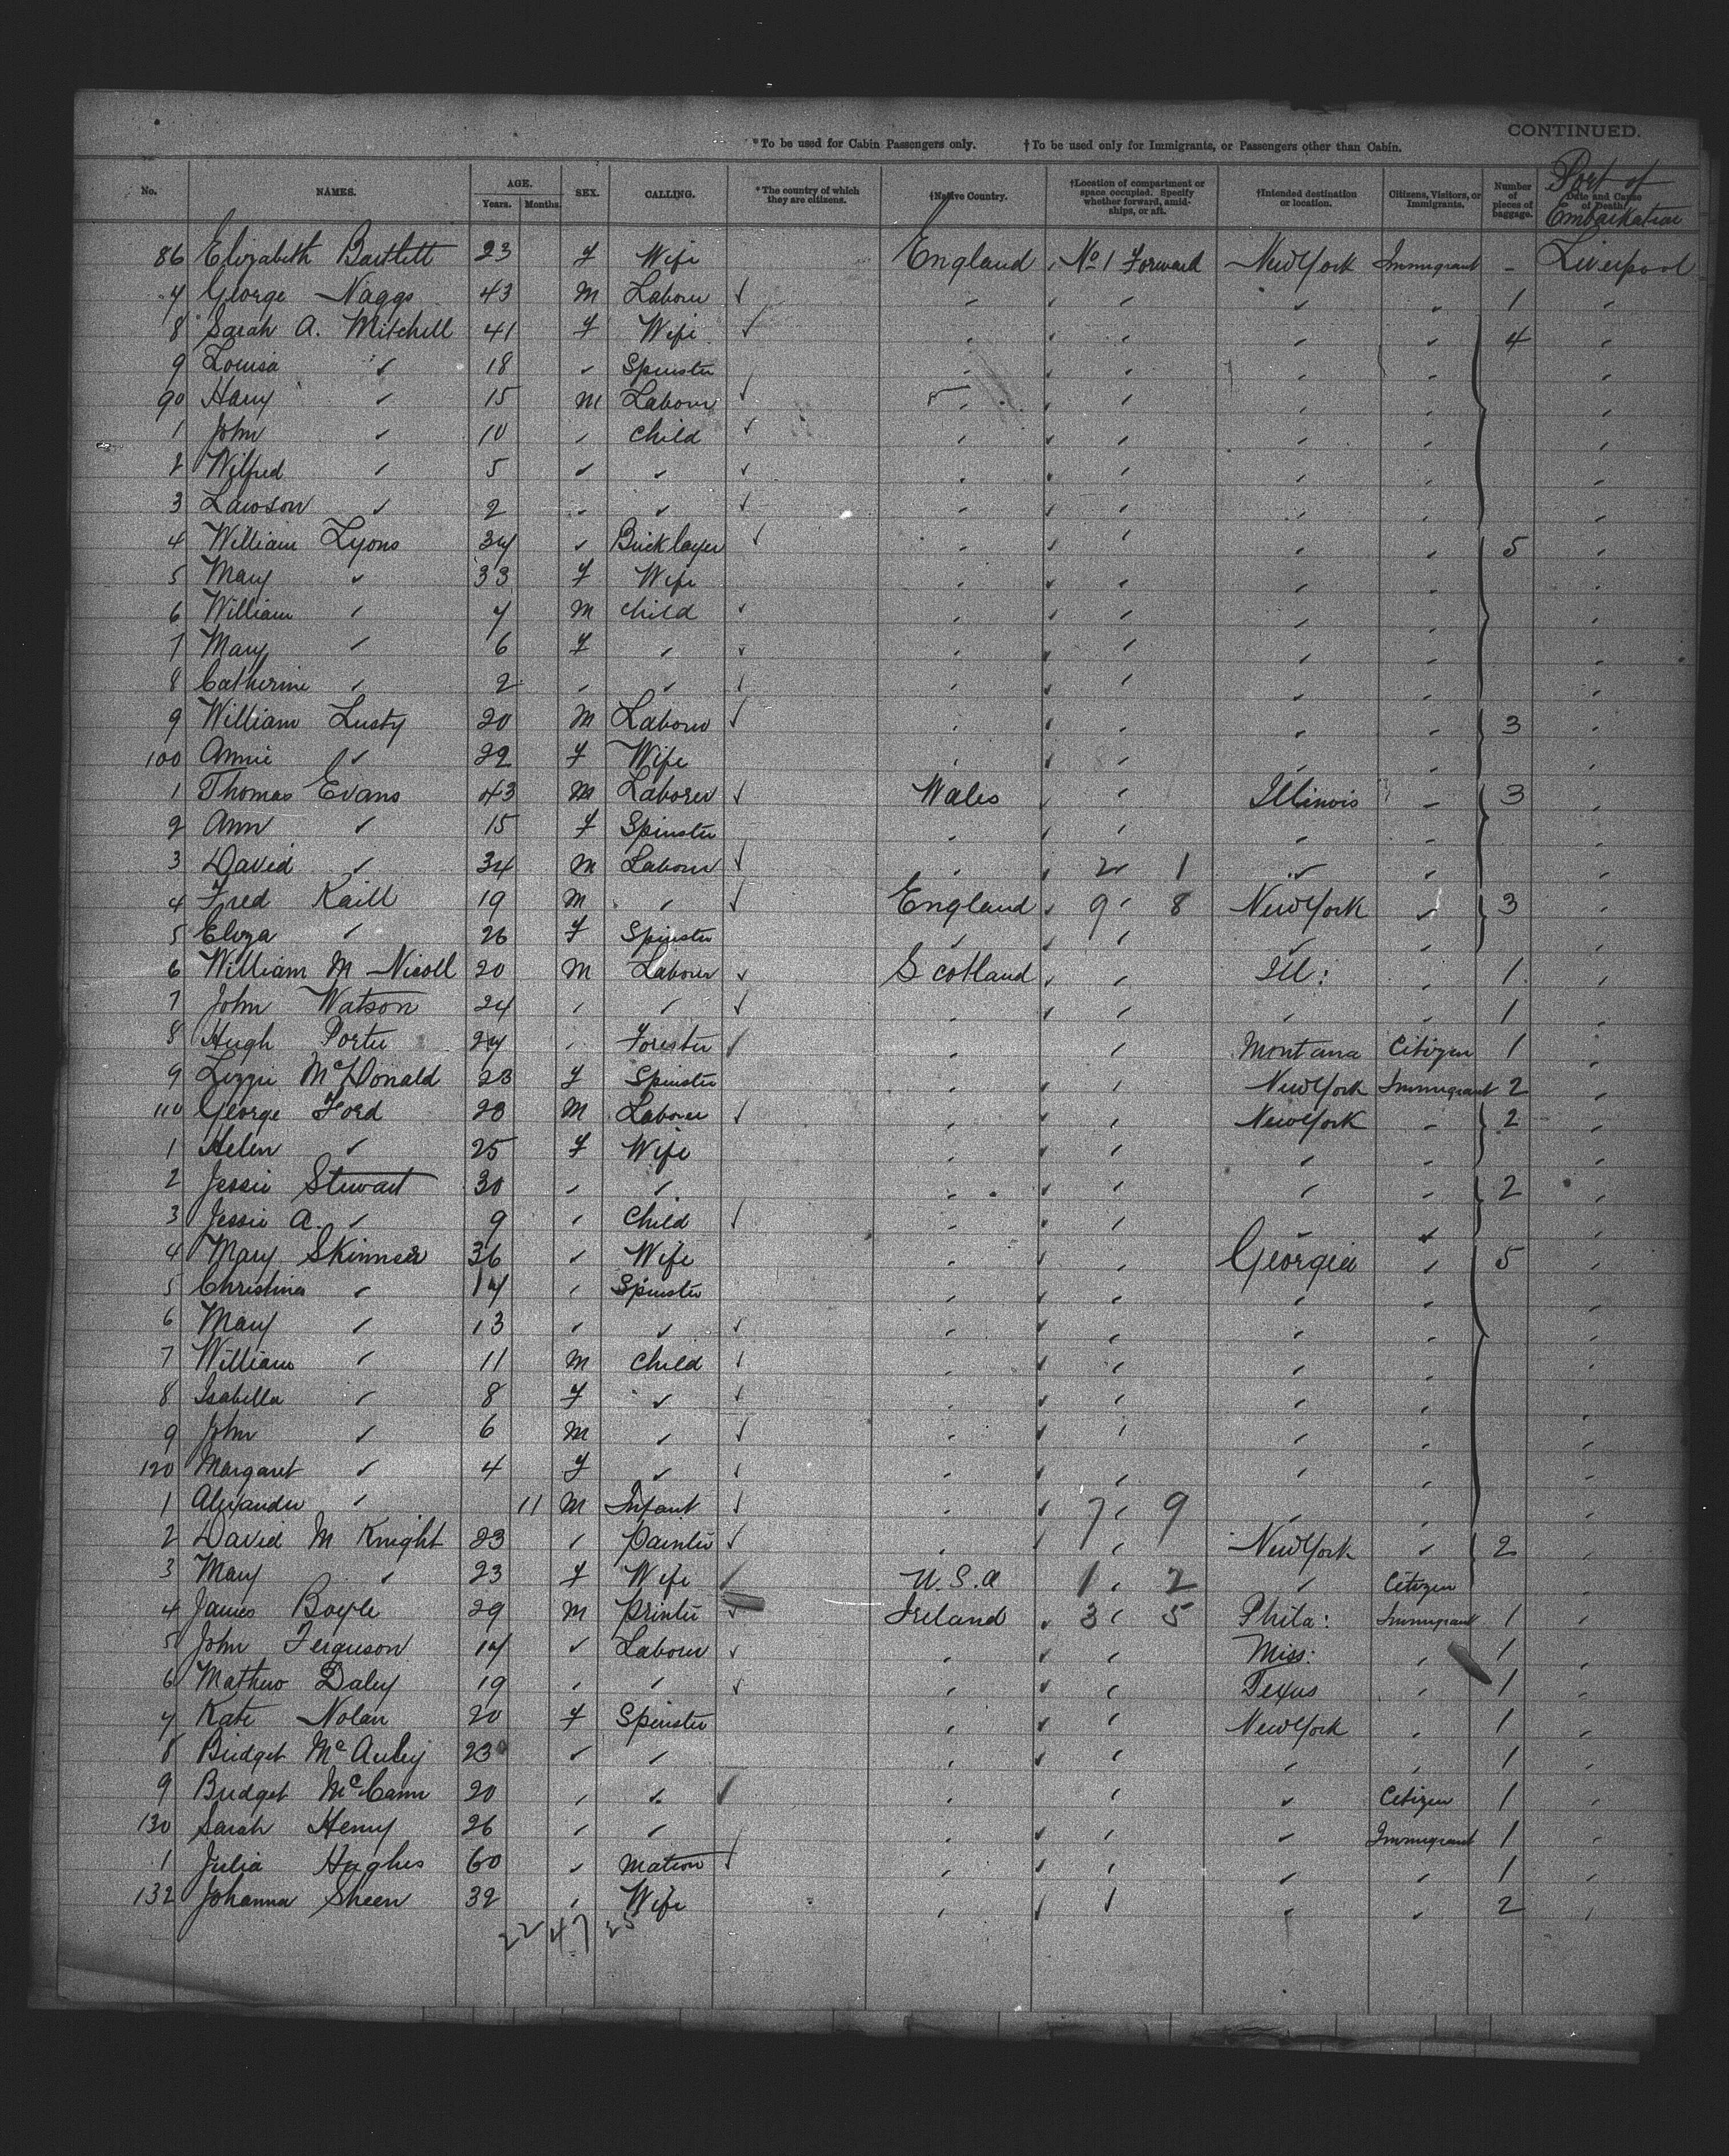 CONTINUED.
*To be used for Cabin Passengers only. †To be used only for Immigrants, or Passengers other than Cabin.
No. NAMES. AGE. Years. Months. SEX. CALLING. *The country of which they are citizens. †Native Country. †Location of compartment or space occupied. Specify whether forward, amidships, or aft. †Intended destination or location. Citizens, Visitors, or Immigrants. Number of pieces of baggage. Date and Cause of Death. Port of Embarkation
86 Elizabeth Bartlett 23 F Wife England No 1 Forward New York Immigrant - Liverpool
7 George Naggs 43 M Laborer " " " " 1 "
8 Sarah A. Mitchell 41 F Wife " " " " 4 "
9 Louisa " 18 " Spinster " " " " "
90 Harry " 15 M Laborer " " " " "
1 John " 10 " Child " " " " "
2 Wilfred " 5 " " " " " " "
3 Lawson " 2 " " " " " " "
4 William Lyons 34 " Bricklayer " " " " 5 "
5 Mary " 33 F Wife " " " " "
6 William " 7 M Child " " " " "
7 Mary " 6 F " " " " " "
8 Catherine " 2 " " " " " " "
9 William Lusty 20 M Laborer " " " " 3 "
100 Annie " 22 F Wife " " " " "
1 Thomas Evans 43 M Laborer Wales " Illinois " 3 "
2 Ann " 15 F Spinster " " " " "
3 David " 34 M Laborer " 2 1 " " "
4 Fred Kaill 19 M " England 9 8 New York " 3 "
5 Eliza " 26 F Spinster " " " " "
6 William M Nicoll 20 M Laborer Scotland " Ill: " 1 "
7 John Watson 24 " " " " " " 1 "
8 Hugh Porter 27 " Forester " " Montana Citizen 1 "
9 Lizzie McDonald 23 F Spinster " " New York Immigrant 2 "
110 George Ford 28 M Laborer " " New York " 2 "
1 Helen " 25 F Wife " " " " "
2 Jessie Stewart 30 " " " " " " 2 "
3 Jessie A. " 9 " Child " " " " "
4 Mary Skinner 36 " Wife " " Georgia " 5 "
5 Christina " 17 " Spinster " " " " "
6 Mary " 13 " " " " " " "
7 William " 11 M Child " " " " "
8 Isabella " 8 F " " " " " "
9 John " 6 M " " " " " "
120 Margaret " 4 F " " " " " "
1 Alexander " 11 M Infant " 7 9 " " "
2 David M Knight 23 " Painter " " New York " 2 "
3 Mary " 23 F Wife U.S.A 1 2 " Citizen "
4 James Boyle 29 M Printer Ireland 3 5 Phila: Immigrant 1 "
5 John Ferguson 17 " Laborer " " Miss: " 1 "
6 Mathew Daley 19 " " " " Texas " 1 "
7 Kate Nolan 20 F Spinster " " New York " 1 "
8 Bridget McAuley 23 " " " " " " 1 "
9 Bridget McCann 20 " " " " " Citizen 1 "
130 Sarah Henry 26 " " " " " Immigrant 1 "
1 Julia Hughes 60 " Matron " " " " 1 "
132 Johanna Sheen 32 " Wife " " " " 2 "
22 47 25